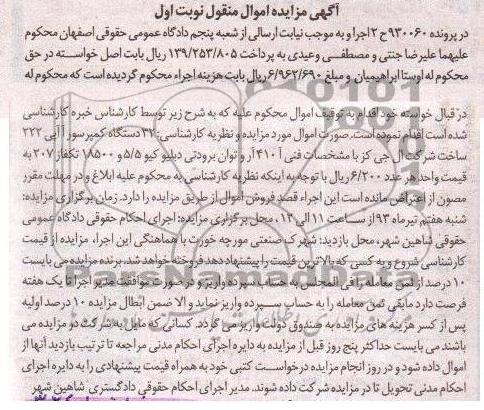 آگهی مزایده اموال منقول نوبت اول
در پرونده ۹۳۰۰۶۰ ح ۲ اجرا و به موجب نیابت ارسالی از شعبه پنجم دادگاه عمومی حقوقی اصفهان محکوم
علیهما علیرضا جنتی و مصطفی وعیدی به پرداخت ۱۳۹/۲۵۳/۸۰۵ ریال بابت اصل خواسته در حق
محکوم له اوستا ابراهیمیان و مبلغ ۶/۹۶۲/۶۹۰ ریال بابت هزینه اجراء محکوم گردیده است که محکوم له
در قبال خواسته خود اقدام به توقیف اموال محکوم علیه که به شرح زیر توسط کارشناس خبره کارشناسی
شده است اقدام نموده است. صورت اموال مورد مزایده و نظریه کارشناسی: ۳۲ دستگاه کمپرسور آ آپی ۲۲۲
ساخت شرکت ال جی کز با مشخصات فنی آ ۴۱۰ آر و توان برودتی دبلیو کیو ۵/۵ و ۱۸۵۰۰ تکفاز ۲۰۷ به
قیمت واحد هر عدد ۶/۲۰۰ ریال با توجه به اینکه نظریه کارشناسی به محکوم علیه ابلاغ و در مهلت مقرر
مصون از اعتراض مانده است این اجراء قصد فروش اموال از طریق مزایده را دارد. زمان برگزاری مزایده:
شنبه هفتم تیرماه ۹۳ از ساعت ۱۱ الی ۱۲، محل برگزاری مزایده: اجرای احکام حقوقی دادگاه عمومی
حقوقی شاهین شهر، محل بازدید: شهرک صنعتی مورچه خورت با هماهنگی این اجرا، مزایده از قیمت
کارشناسی شروع و به کسی که بالاترین قیمت را پیشنهاد دهد فروخته خواهد شد. برنده مزایده می بایست
۱۰ درصد از ثمن معامله را فی المجلس به حساب سپرده واریز و در صورت موافقت مدیر اجرا تا یک هفته
فرصت دارد مابقی ثمن معامله را به حساب سپرده واریز نماید و الا ضمن ابطال مزایده ۱۰ درصد اولیه
پس از کسر هزینه های مزایده به صندوق دولت واریز می گردد. کسانی که مایل به شرکت دو مزایده می
باشند می بایست حداکثر پنج روز قبل از مزایده به دایره اجرای احکام مدنی مراجعه تا ترتیب بازدید آنها از
اموال داده شود و در روز انجام مزایده درخواست کتبی خود به همراه قیمت پیشنهادی را به دایره اجرای
احکام مدنی تحویل تا در مزایده شرکت داده شوند. مدیر اجرای احکام حقوقی دادگستری شاهین شهر
ParsNamadData